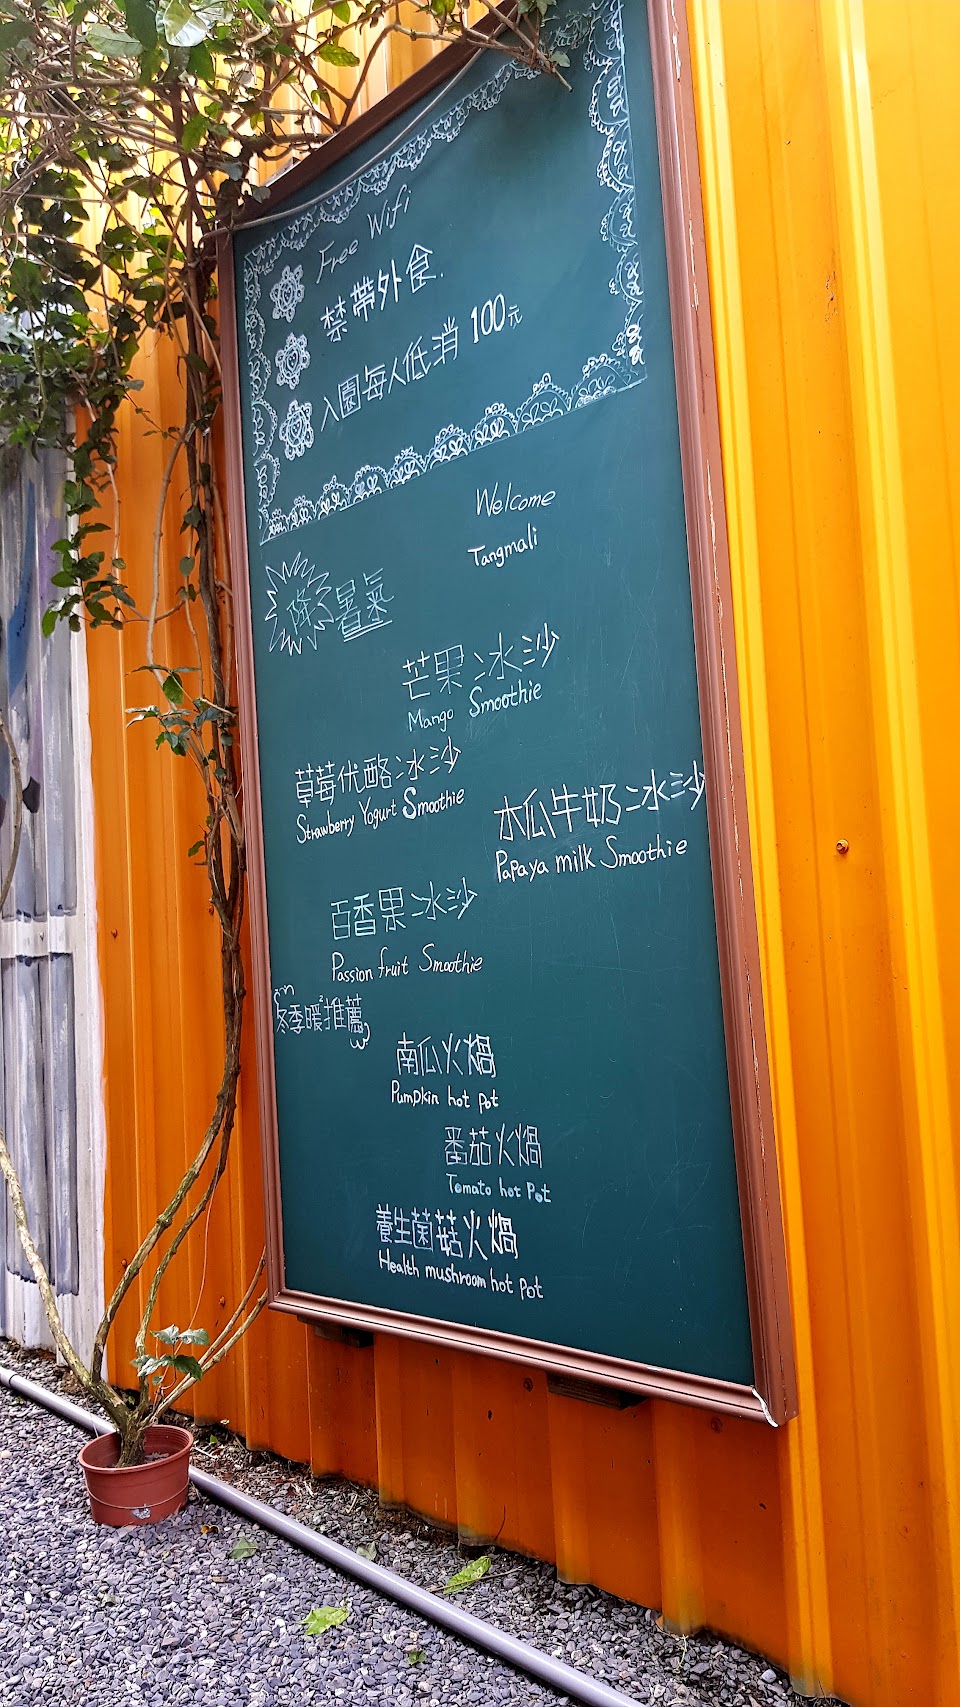 Free Wifi
禁帶外食.
入園每人低消100元
Welcome
Tangmali
降暑氣
芒果冰沙
Mango Smoothie
草莓优酪冰沙
Strawberry Yogurt Smoothie
木瓜牛奶冰沙
Papaya milk Smoothie
百香果冰沙
Passion fruit Smoothie
冬季暖²推薦
南瓜火鍋
Pumpkin hot pot
番茄火鍋
Tomato hot Pot
養生菌菇火鍋
Health mushroom hot pot